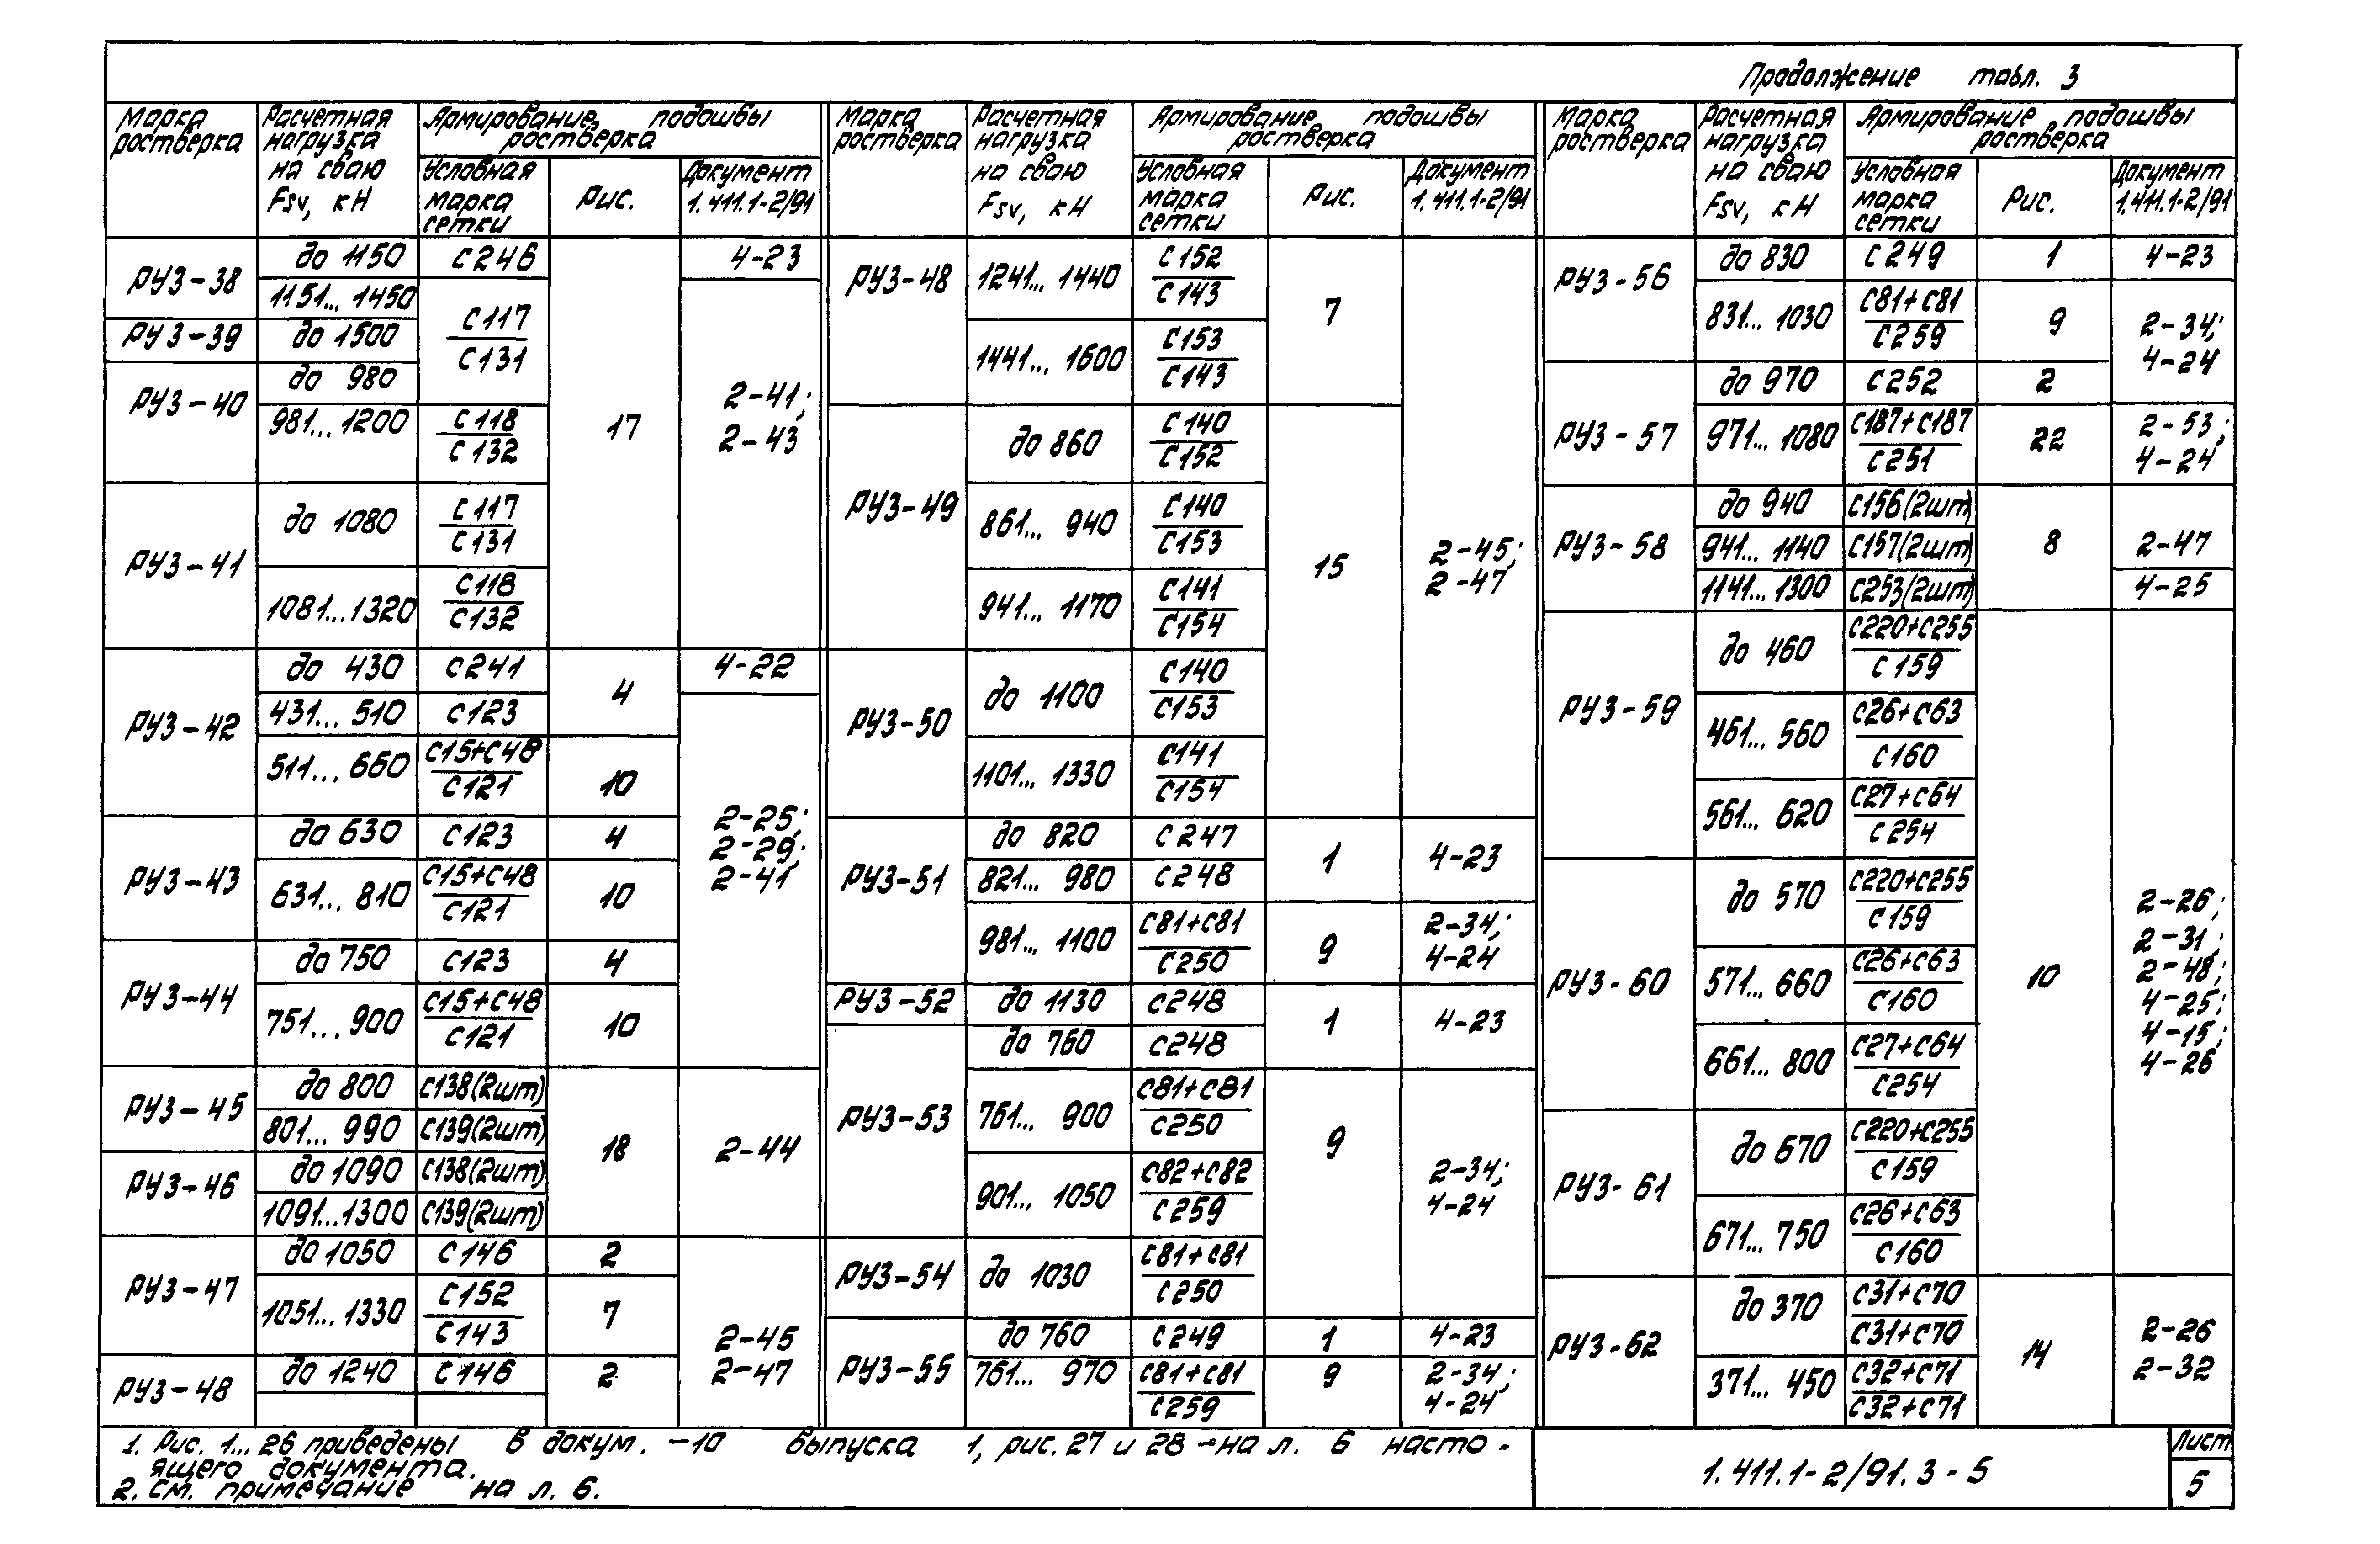 Продолжение табл. 3
Марка ростверка
Расчетная нагрузка на сваю Fsv, кН
Армирование подошвы ростверка
Условная марка сетки
Рис.
Документ 1.411.1-2/91
РУ3-38
до 1150
С246
17
4-23
1151...1450
С117
С131
2-41;
2-43
РУ3-39
до 1500
РУ3-40
до 980
981...1200
С118
С132
РУ3-41
до 1080
С117
С131
1081...1320
С118
С132
РУ3-42
до 430
С241
4
4-22
431...510
С123
2-25;
2-29;
2-41
511...660
С15+С48
С121
10
РУ3-43
до 630
С123
4
631...810
С15+С48
С121
10
РУ3-44
до 750
С123
4
751...900
С15+С48
С121
10
РУ3-45
до 800
С138(2шт)
18
2-44
801...990
С139(2шт)
РУ3-46
до 1090
С138(2шт)
1091...1300
С139(2шт)
РУ3-47
до 1050
С146
2
2-45
2-47
1051...1330
С152
С143
7
РУ3-48
до 1240
С146
2
Марка ростверка
Расчетная нагрузка на сваю Fsv, кН
Армирование подошвы ростверка
Условная марка сетки
Рис.
Документ 1.411.1-2/91
РУ3-48
1241...1440
С152
С143
7
2-45;
2-47
1441...1600
С153
С143
РУ3-49
до 860
С140
С152
15
861...940
С140
С153
941...1170
С141
С154
РУ3-50
до 1100
С140
С153
1101...1330
С141
С154
РУ3-51
до 820
С247
1
4-23
821...980
С248
981...1100
С81+С81
С250
9
2-34;
4-24
РУ3-52
до 1130
С248
1
4-23
РУ3-53
до 760
С248
761...900
С81+С81
С250
9
2-34;
4-24
901...1050
С82+С82
С259
РУ3-54
до 1030
С81+С81
С250
РУ3-55
до 760
С249
1
4-23
761...970
С81+С81
С259
9
2-34;
4-24
Марка ростверка
Расчетная нагрузка на сваю Fsv, кН
Армирование подошвы ростверка
Условная марка сетки
Рис.
Документ 1.411.1-2/91
РУ3-56
до 830
С249
1
4-23
831...1030
С81+С81
С259
9
2-34;
4-24
РУ3-57
до 970
С252
2
971...1080
С187+С187
С251
22
2-53;
4-24
РУ3-58
до 940
С156(2шт)
8
2-47
941...1140
С157(2шт)
1141...1300
С253(2шт)
4-25
РУ3-59
до 460
С220+С255
С159
10
2-26;
2-31;
2-48;
4-25;
4-15;
4-26
461...560
С26+С63
С160
561...620
С27+С64
С254
РУ3-60
до 570
С220+С255
С159
571...660
С26+С63
С160
661...800
С27+С64
С254
РУ3-61
до 670
С220+С255
С159
671...750
С26+С63
С160
РУ3-62
до 370
С31+С70
С31+С70
14
2-26
2-32
371...450
С32+С71
С32+С71
1. Рис. 1...26 приведены в докум. -10 выпуска 1, рис. 27 и 28 - на л. 6 насто-
ящего документа.
2. См. примечание на л. 6.
1.411.1-2/91.3-5
Лист
5